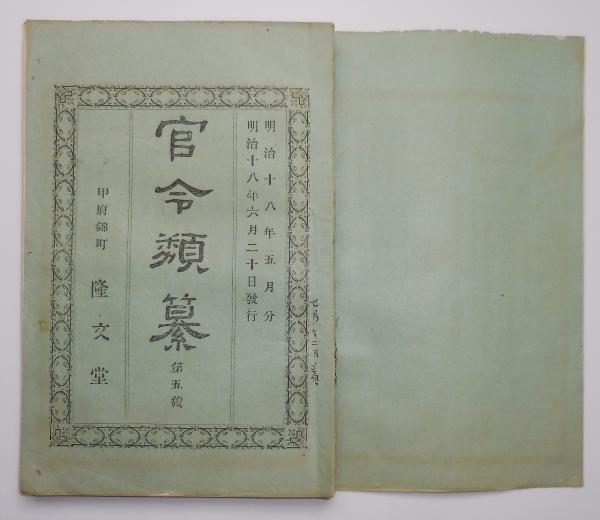 明治十八年五月分
明治十八年六月二十日發行
官令類纂
第五號
甲府錦町 隆文堂